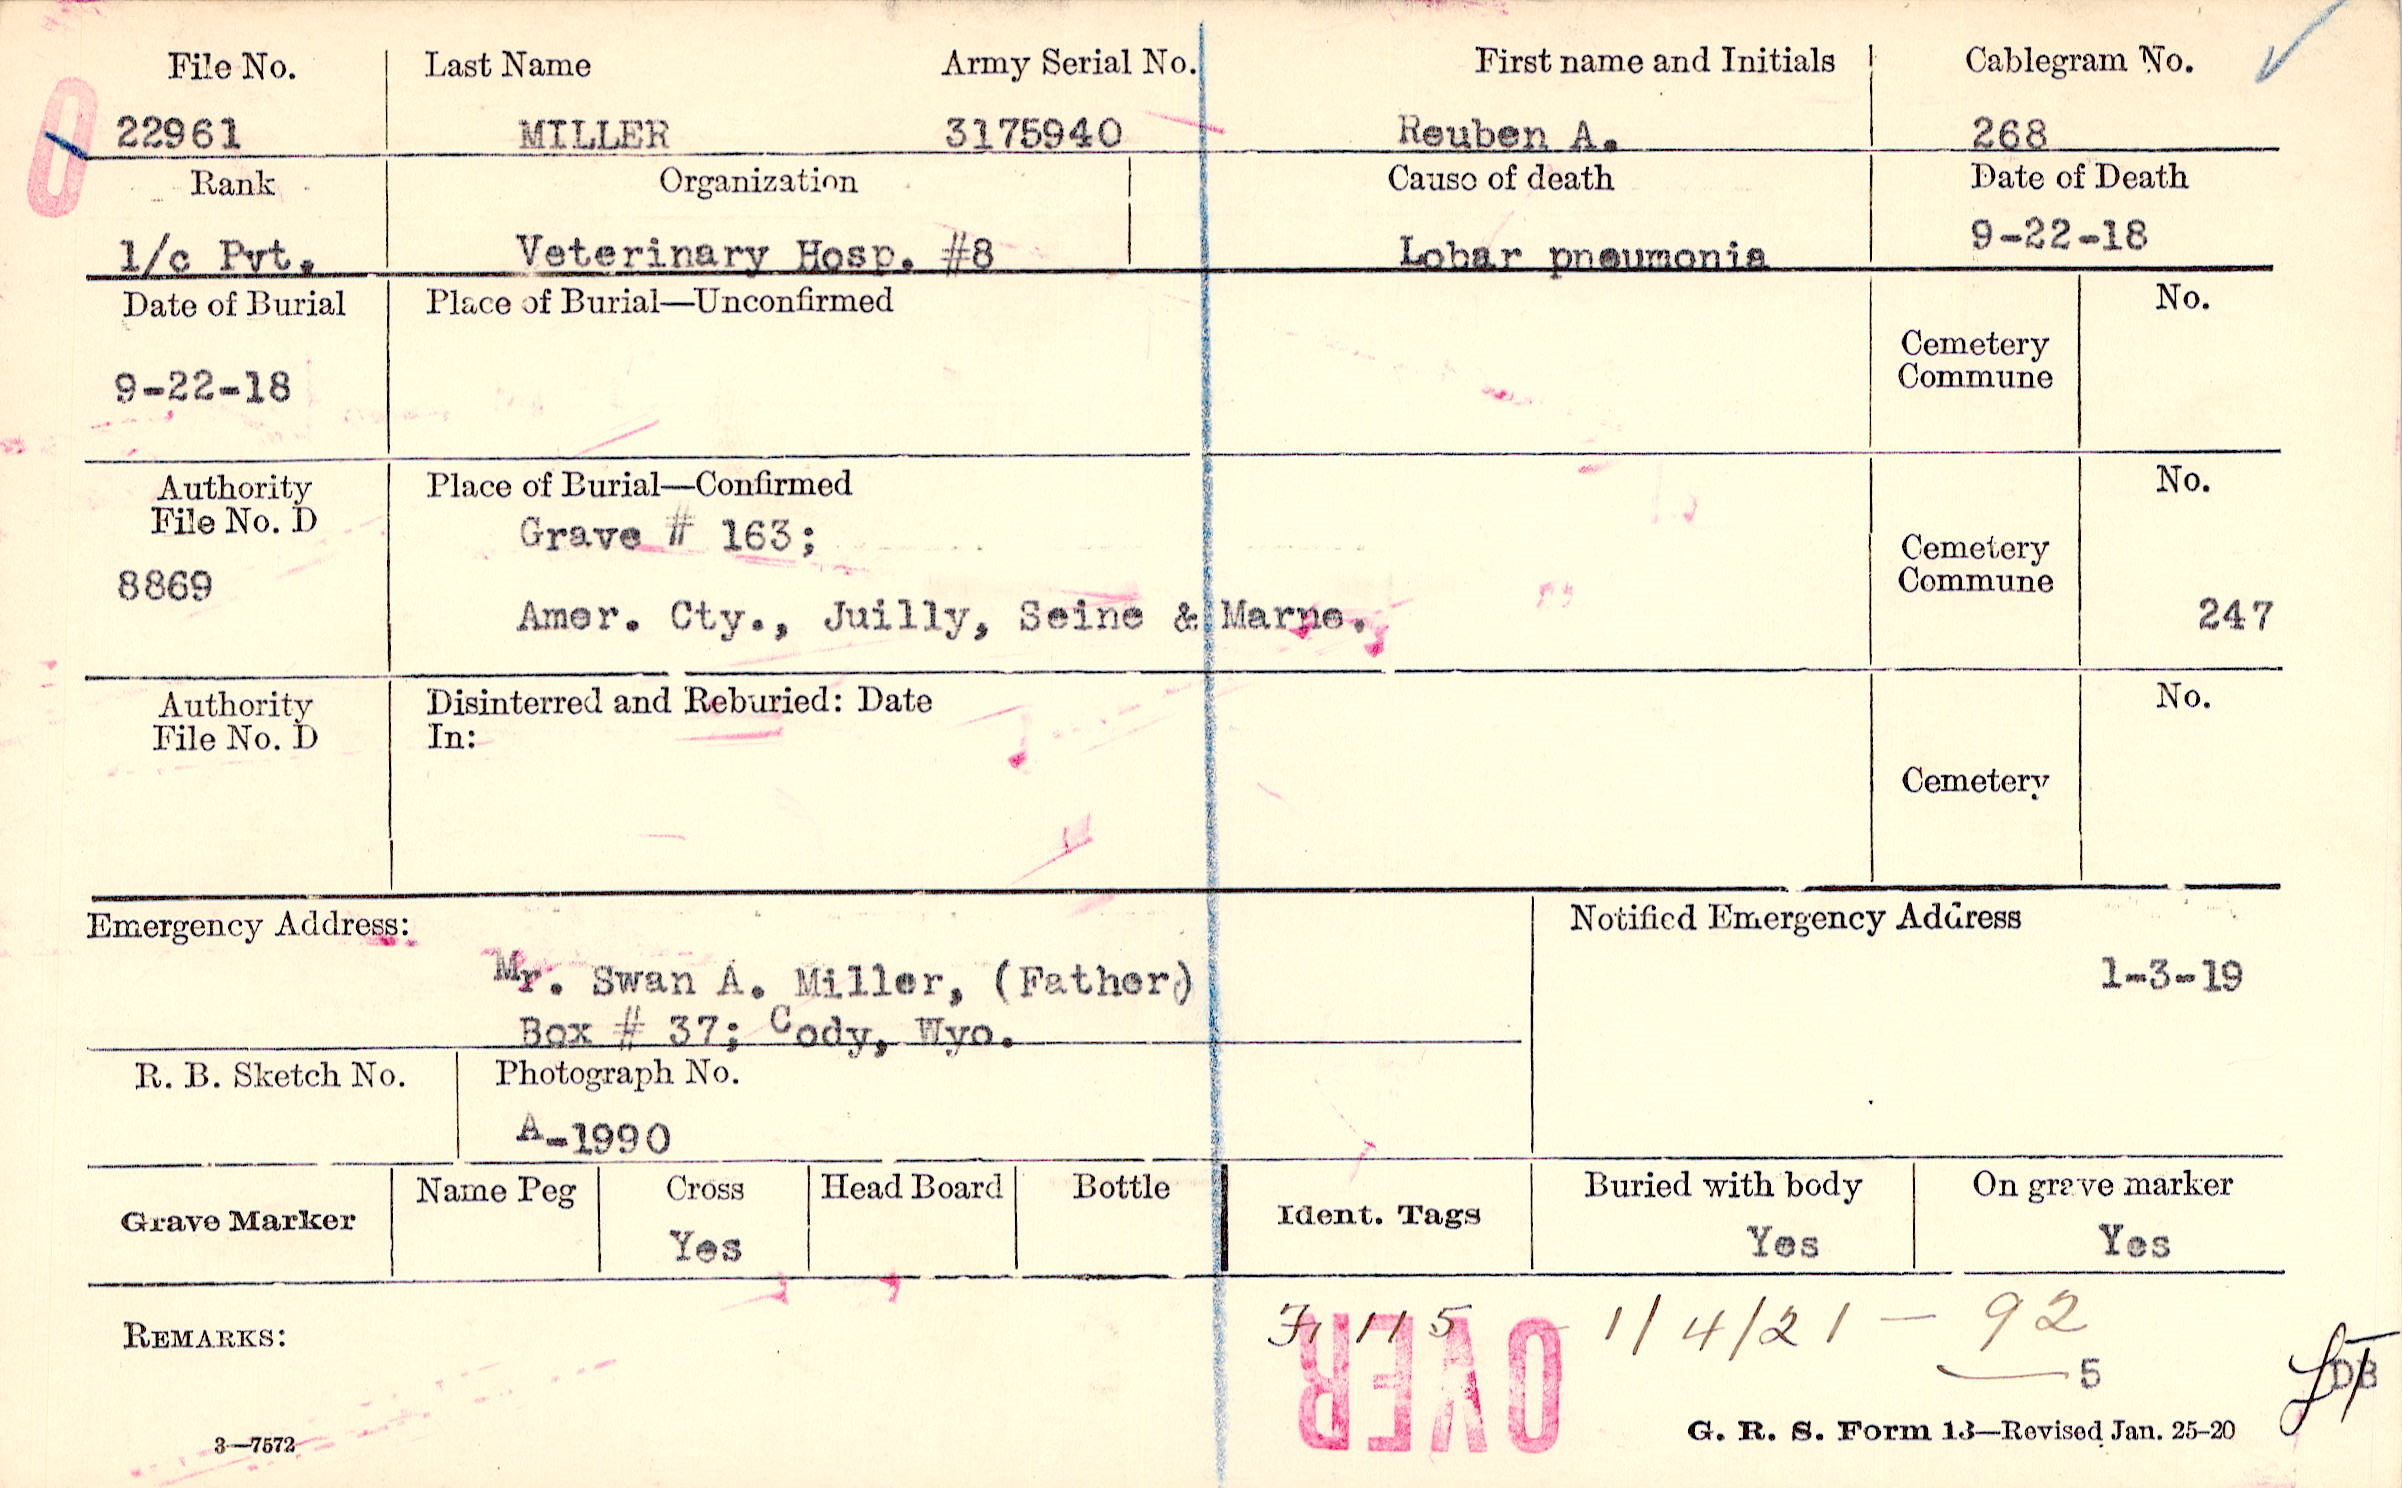 File No. Last Name Army Serial No. First name and Initials Cablegram No.
22961 MILLER 3175940 Reuben A. 268
Rank Organization Cause of death Date of Death
1/c Pvt. Veterinary Hosp. #8 Lobar pneumonia 9-22-18
Date of Burial Place of Burial—Unconfirmed No.
Cemetery
Commune
9-22-18
Authority Place of Burial—Confirmed No.
File No. D
Grave # 163;
Cemetery
Commune
8869
Amer. Cty., Juilly, Seine & Marne. 247
Authority Disinterred and Reburied: Date No.
File No. D In:
Cemetery
Emergency Address: Notified Emergency Address
Mr. Swan A. Miller, (Father) 1-3-19
Box # 37; Cody, Wyo.
R. B. Sketch No. Photograph No.
A-1990
Grave Marker Name Peg Cross Head Board Bottle Ident. Tags Buried with body On grave marker
Yes Yes Yes
115 - 1/4/21 - 92
REMARKS: OVER
5 DB
3—7572 G. R. S. Form 13—Revised Jan. 25-20